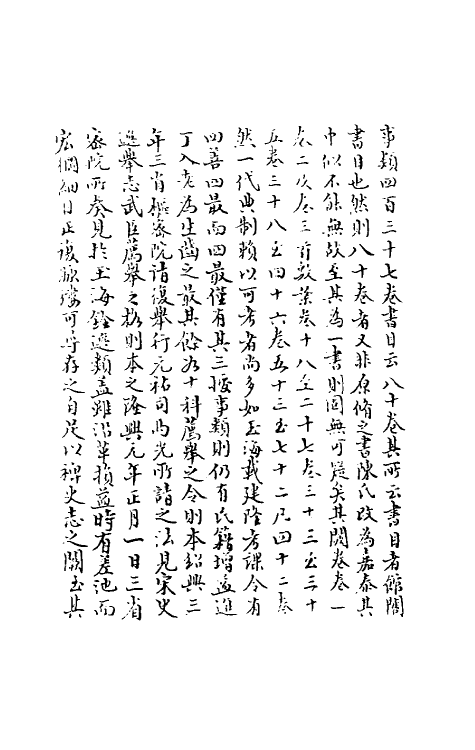 事類四百三十七卷書目云八十卷其所云書目者館閣
書目也然則八十卷者又非原脩之書陳氏改為嘉泰其
中似不能無故至其為一書則固無可疑矣其闕卷卷一
卷二及卷三首數葉卷十八至二十七卷三十三至三十
五卷三十八至四十六卷五十三至七十二凡四十二卷
然一代典制賴以可考者尚多如玉海載建隆考課令有
四善四最而四最僅有其三據事類則仍有民籍增益進
丁入老為生齒之最其餘為十科薦舉之令則本紹興三
年三省樞密院請復舉行元祐司馬光所請之法見宋史
選舉志武臣薦舉之格則本之隆興元年正月一日三省
密院所奏見於玉海銓選類蓋雖沿革損益時有差池而
宏綱細目正復犂可考存之自足以裨史志之闕至其